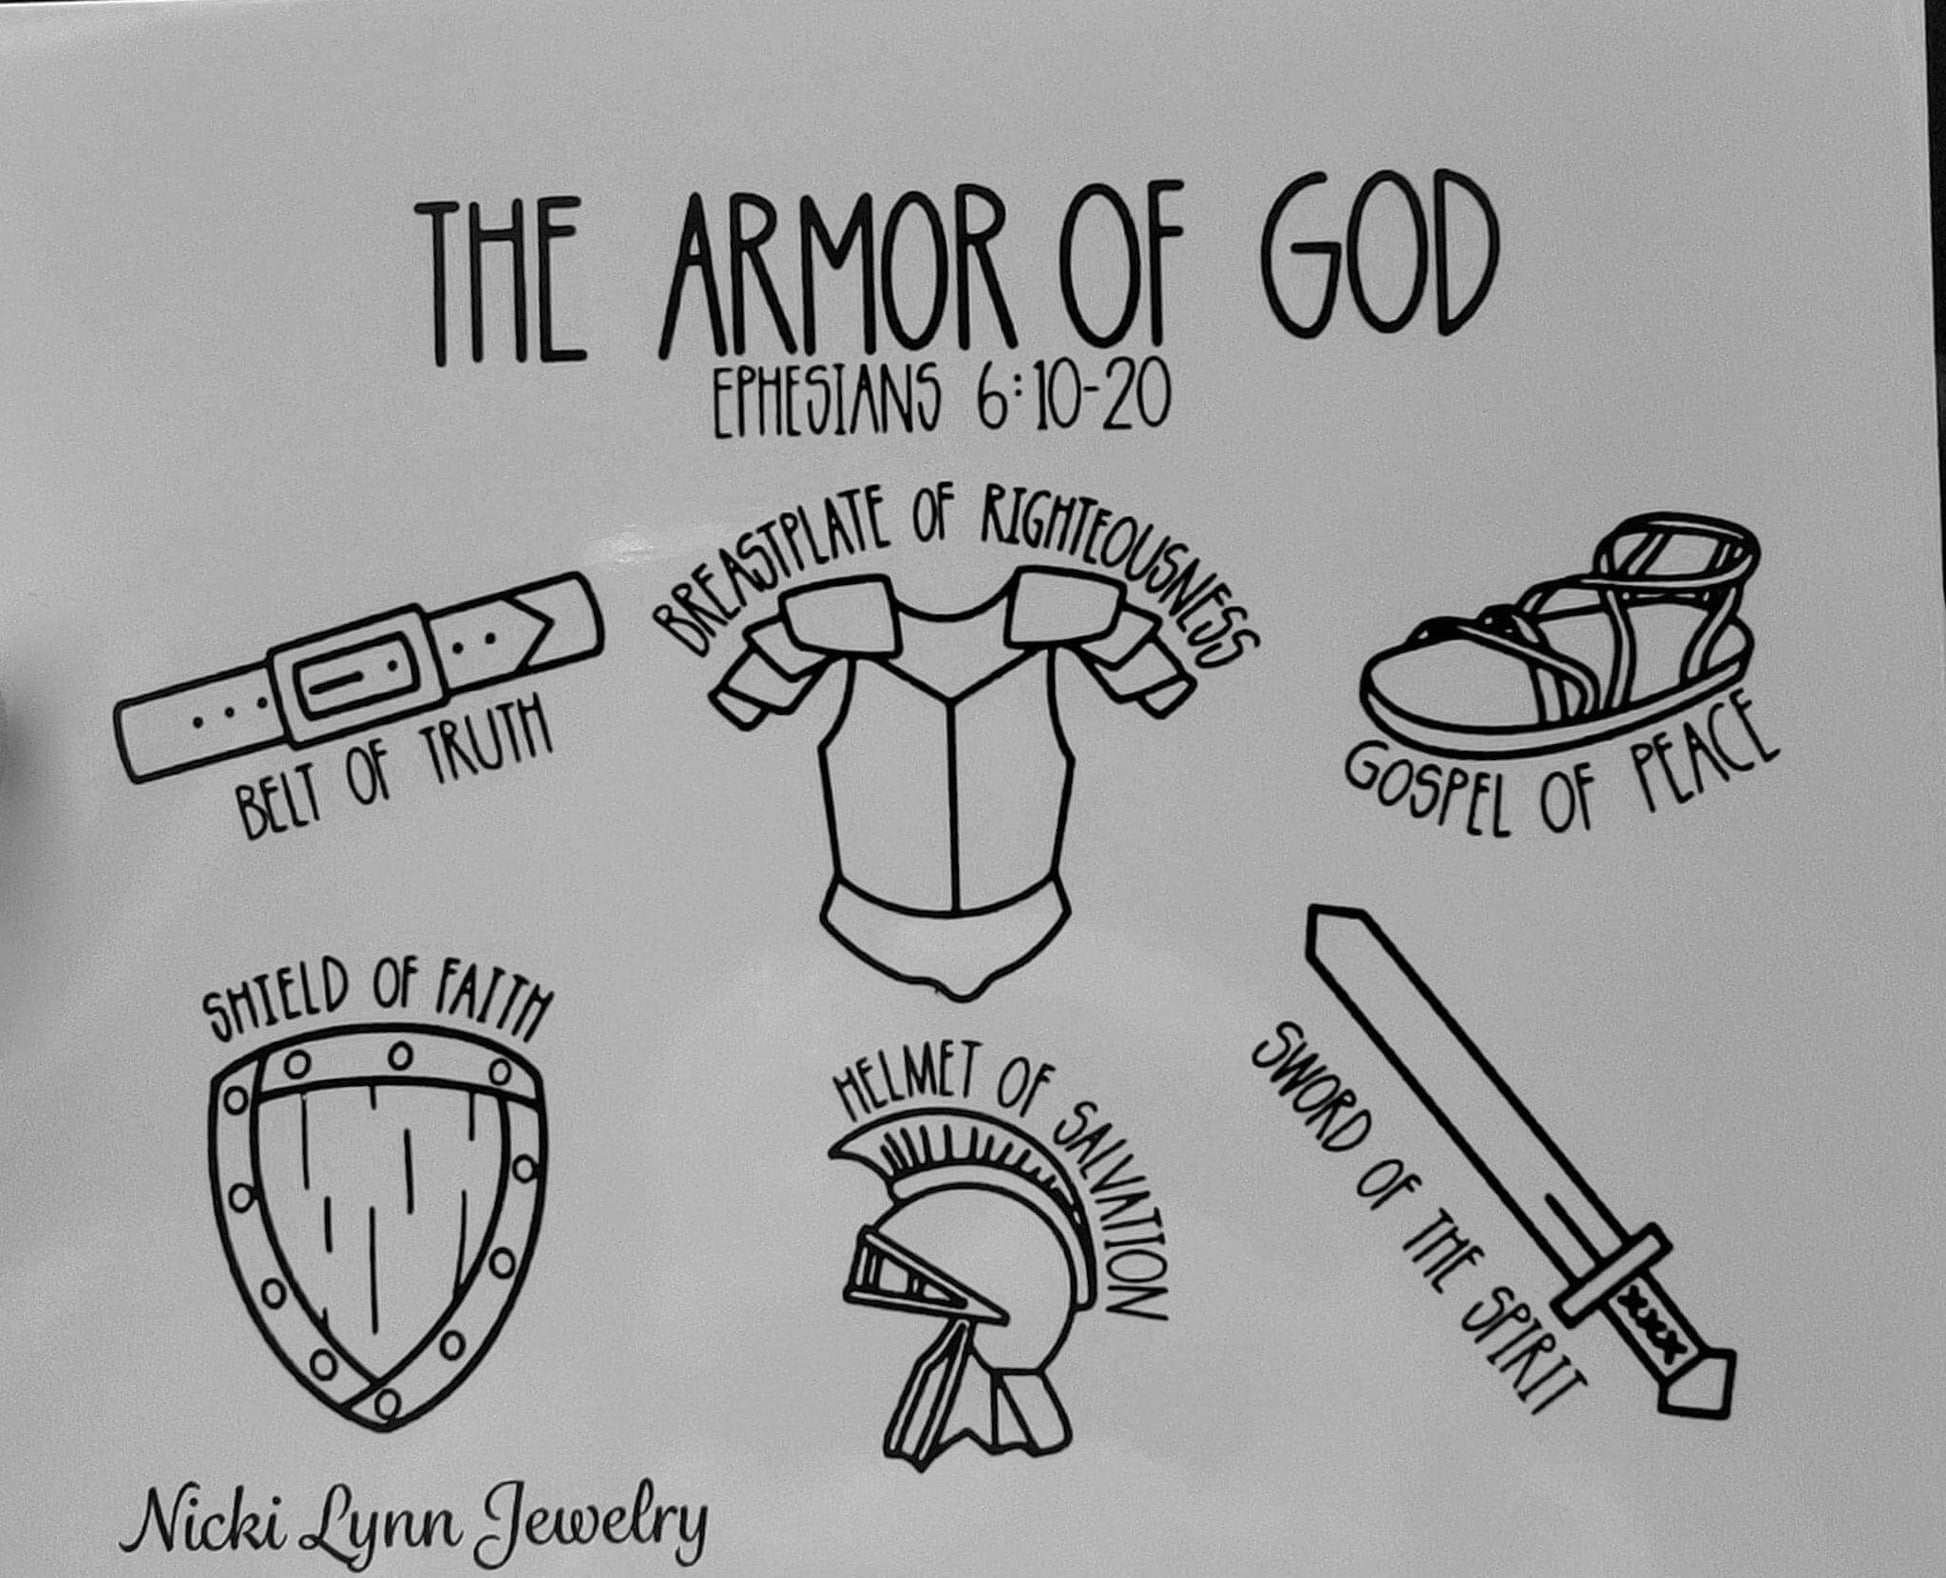 THE ARMOR OF GOD
EPHESIANS 6:10-20
BREASTPLATE OF RIGHTEOUSNESS
BELT OF TRUTH
GOSPEL OF PEACE
SHIELD OF FAITH
HELMET OF SALVATION
SWORD OF THE SPIRIT
Nicki Lynn Jewelry